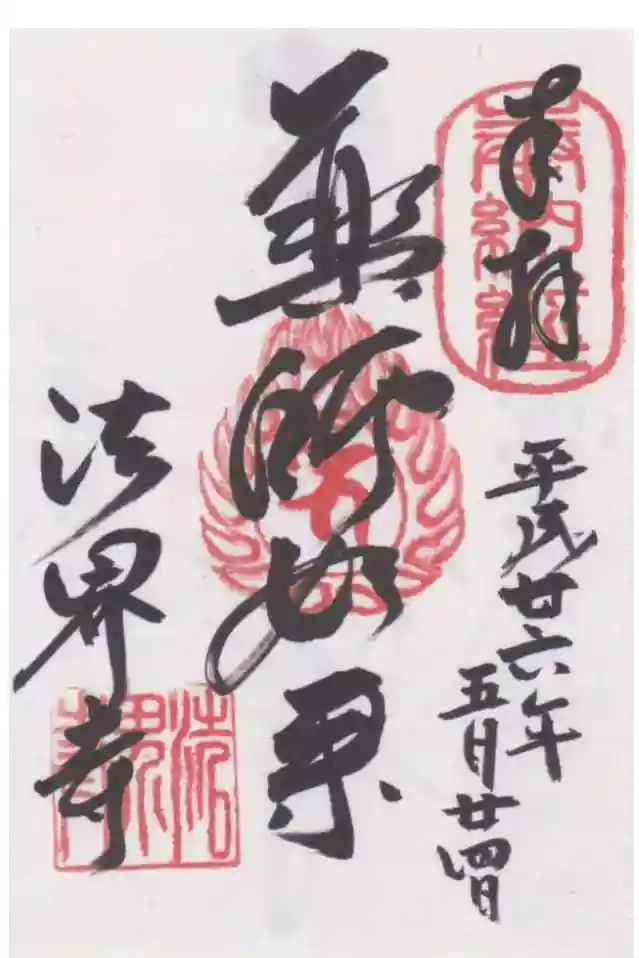 奉拝
奉納経
平成廿六年
五月廿四日
薬師如来
法界寺
法界寺